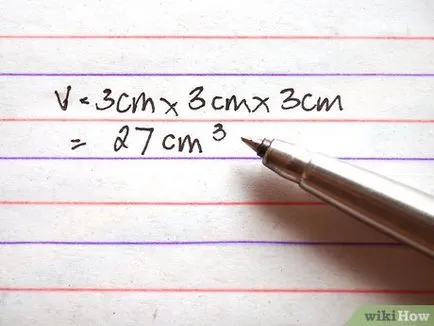 V = 3cm x 3cm x 3cm
= 27 cm³
wikiHow